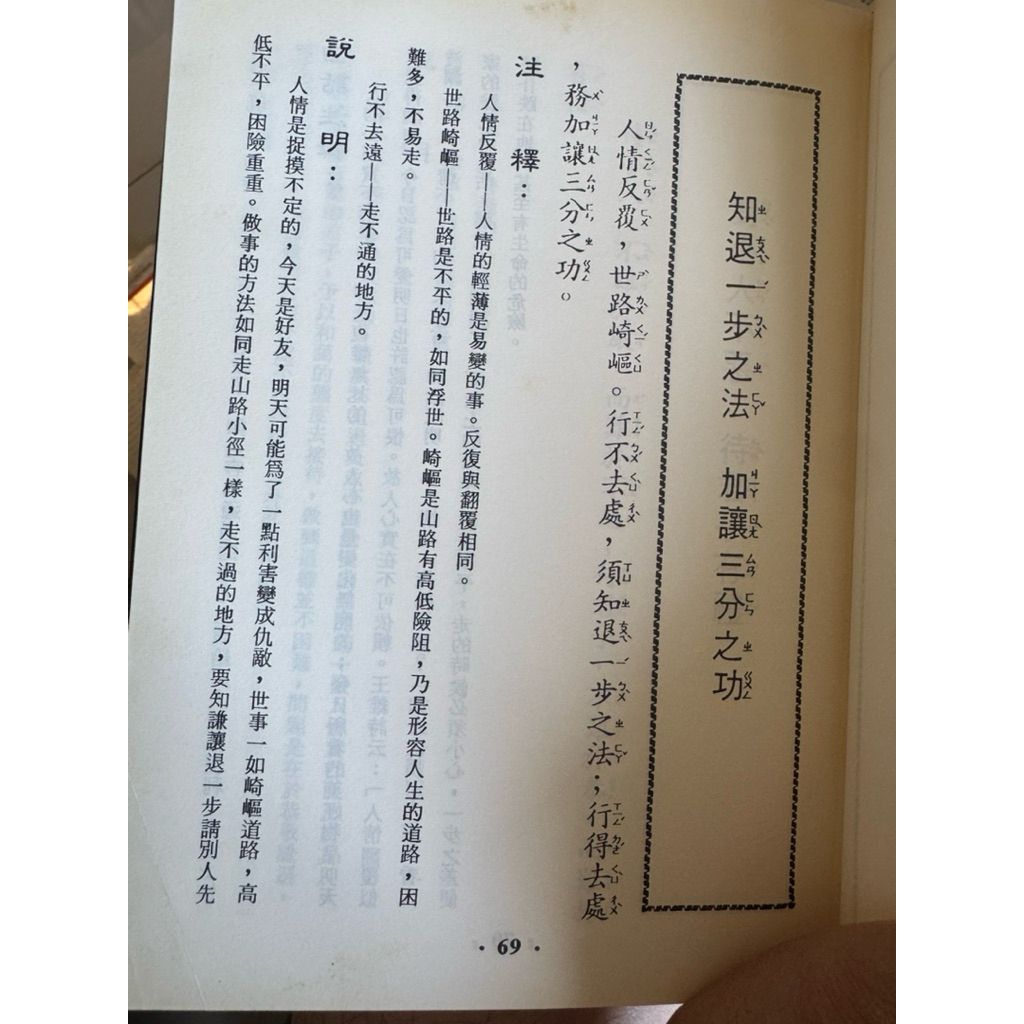 知退一步之法　加讓三分之功
人情反覆，世路崎嶇。行不去處，須知退一步之法；行得去處
，務加讓三分之功。
注釋：
人情反覆——人情的輕薄是易變的事。反復與翻覆相同。
世路崎嶇——世路是不平的，如同浮世。崎嶇是山路有高低險阻，乃是形容人生的道路，困
難多，不易走。
行不去遠——走不通的地方。
說明：
人情是捉摸不定的，今天是好友，明天可能爲了一點利害變成仇敵，世事一如崎嶇道路，高
低不平，困險重重。做事的方法如同走山路小徑一樣，走不過的地方，要知謙讓退一步請別人先
·69·